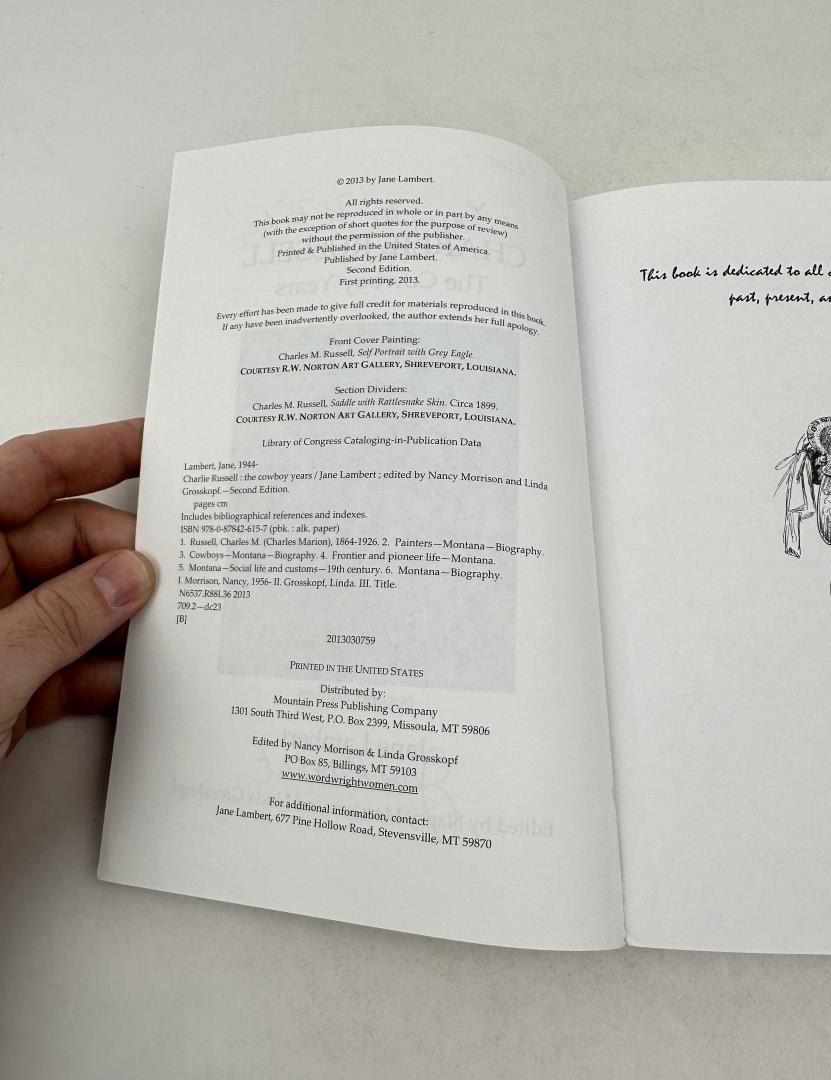 © 2013 by Jane Lambert.
All rights reserved.
This book may not be reproduced in whole or in part by any means
(with the exception of short quotes for the purpose of review)
without the permission of the publisher.
Printed & Published in the United States of America.
Published by Jane Lambert.
Second Edition.
First printing, 2013.
Every effort has been made to give full credit for materials reproduced in this book.
If any have been inadvertently overlooked, the author extends her full apology.
Front Cover Painting:
Charles M. Russell, Self Portrait with Grey Eagle.
COURTESY R.W. NORTON ART GALLERY, SHREVEPORT, LOUISIANA.
Section Dividers:
Charles M. Russell, Saddle with Rattlesnake Skin. Circa 1899.
COURTESY R.W. NORTON ART GALLERY, SHREVEPORT, LOUISIANA.
Library of Congress Cataloging-in-Publication Data
Lambert, Jane, 1944-
Charlie Russell : the cowboy years / Jane Lambert ; edited by Nancy Morrison and Linda
Grosskopf.—Second Edition.
pages cm
Includes bibliographical references and indexes.
ISBN 978-0-87842-615-7 (pbk. : alk. paper)
1. Russell, Charles M. (Charles Marion), 1864-1926. 2. Painters—Montana—Biography.
3. Cowboys—Montana—Biography. 4. Frontier and pioneer life—Montana.
5. Montana—Social life and customs—19th century. 6. Montana—Biography.
I. Morrison, Nancy, 1956- II. Grosskopf, Linda. III. Title.
N6537.R88L36 2013
709.2—dc23
[B]
2013030759
PRINTED IN THE UNITED STATES
Distributed by:
Mountain Press Publishing Company
1301 South Third West, P.O. Box 2399, Missoula, MT 59806
Edited by Nancy Morrison & Linda Grosskopf
PO Box 85, Billings, MT 59103
www.wordwrightwomen.com
For additional information, contact:
Jane Lambert, 677 Pine Hollow Road, Stevensville, MT 59870
This book is dedicated to all
past, present,